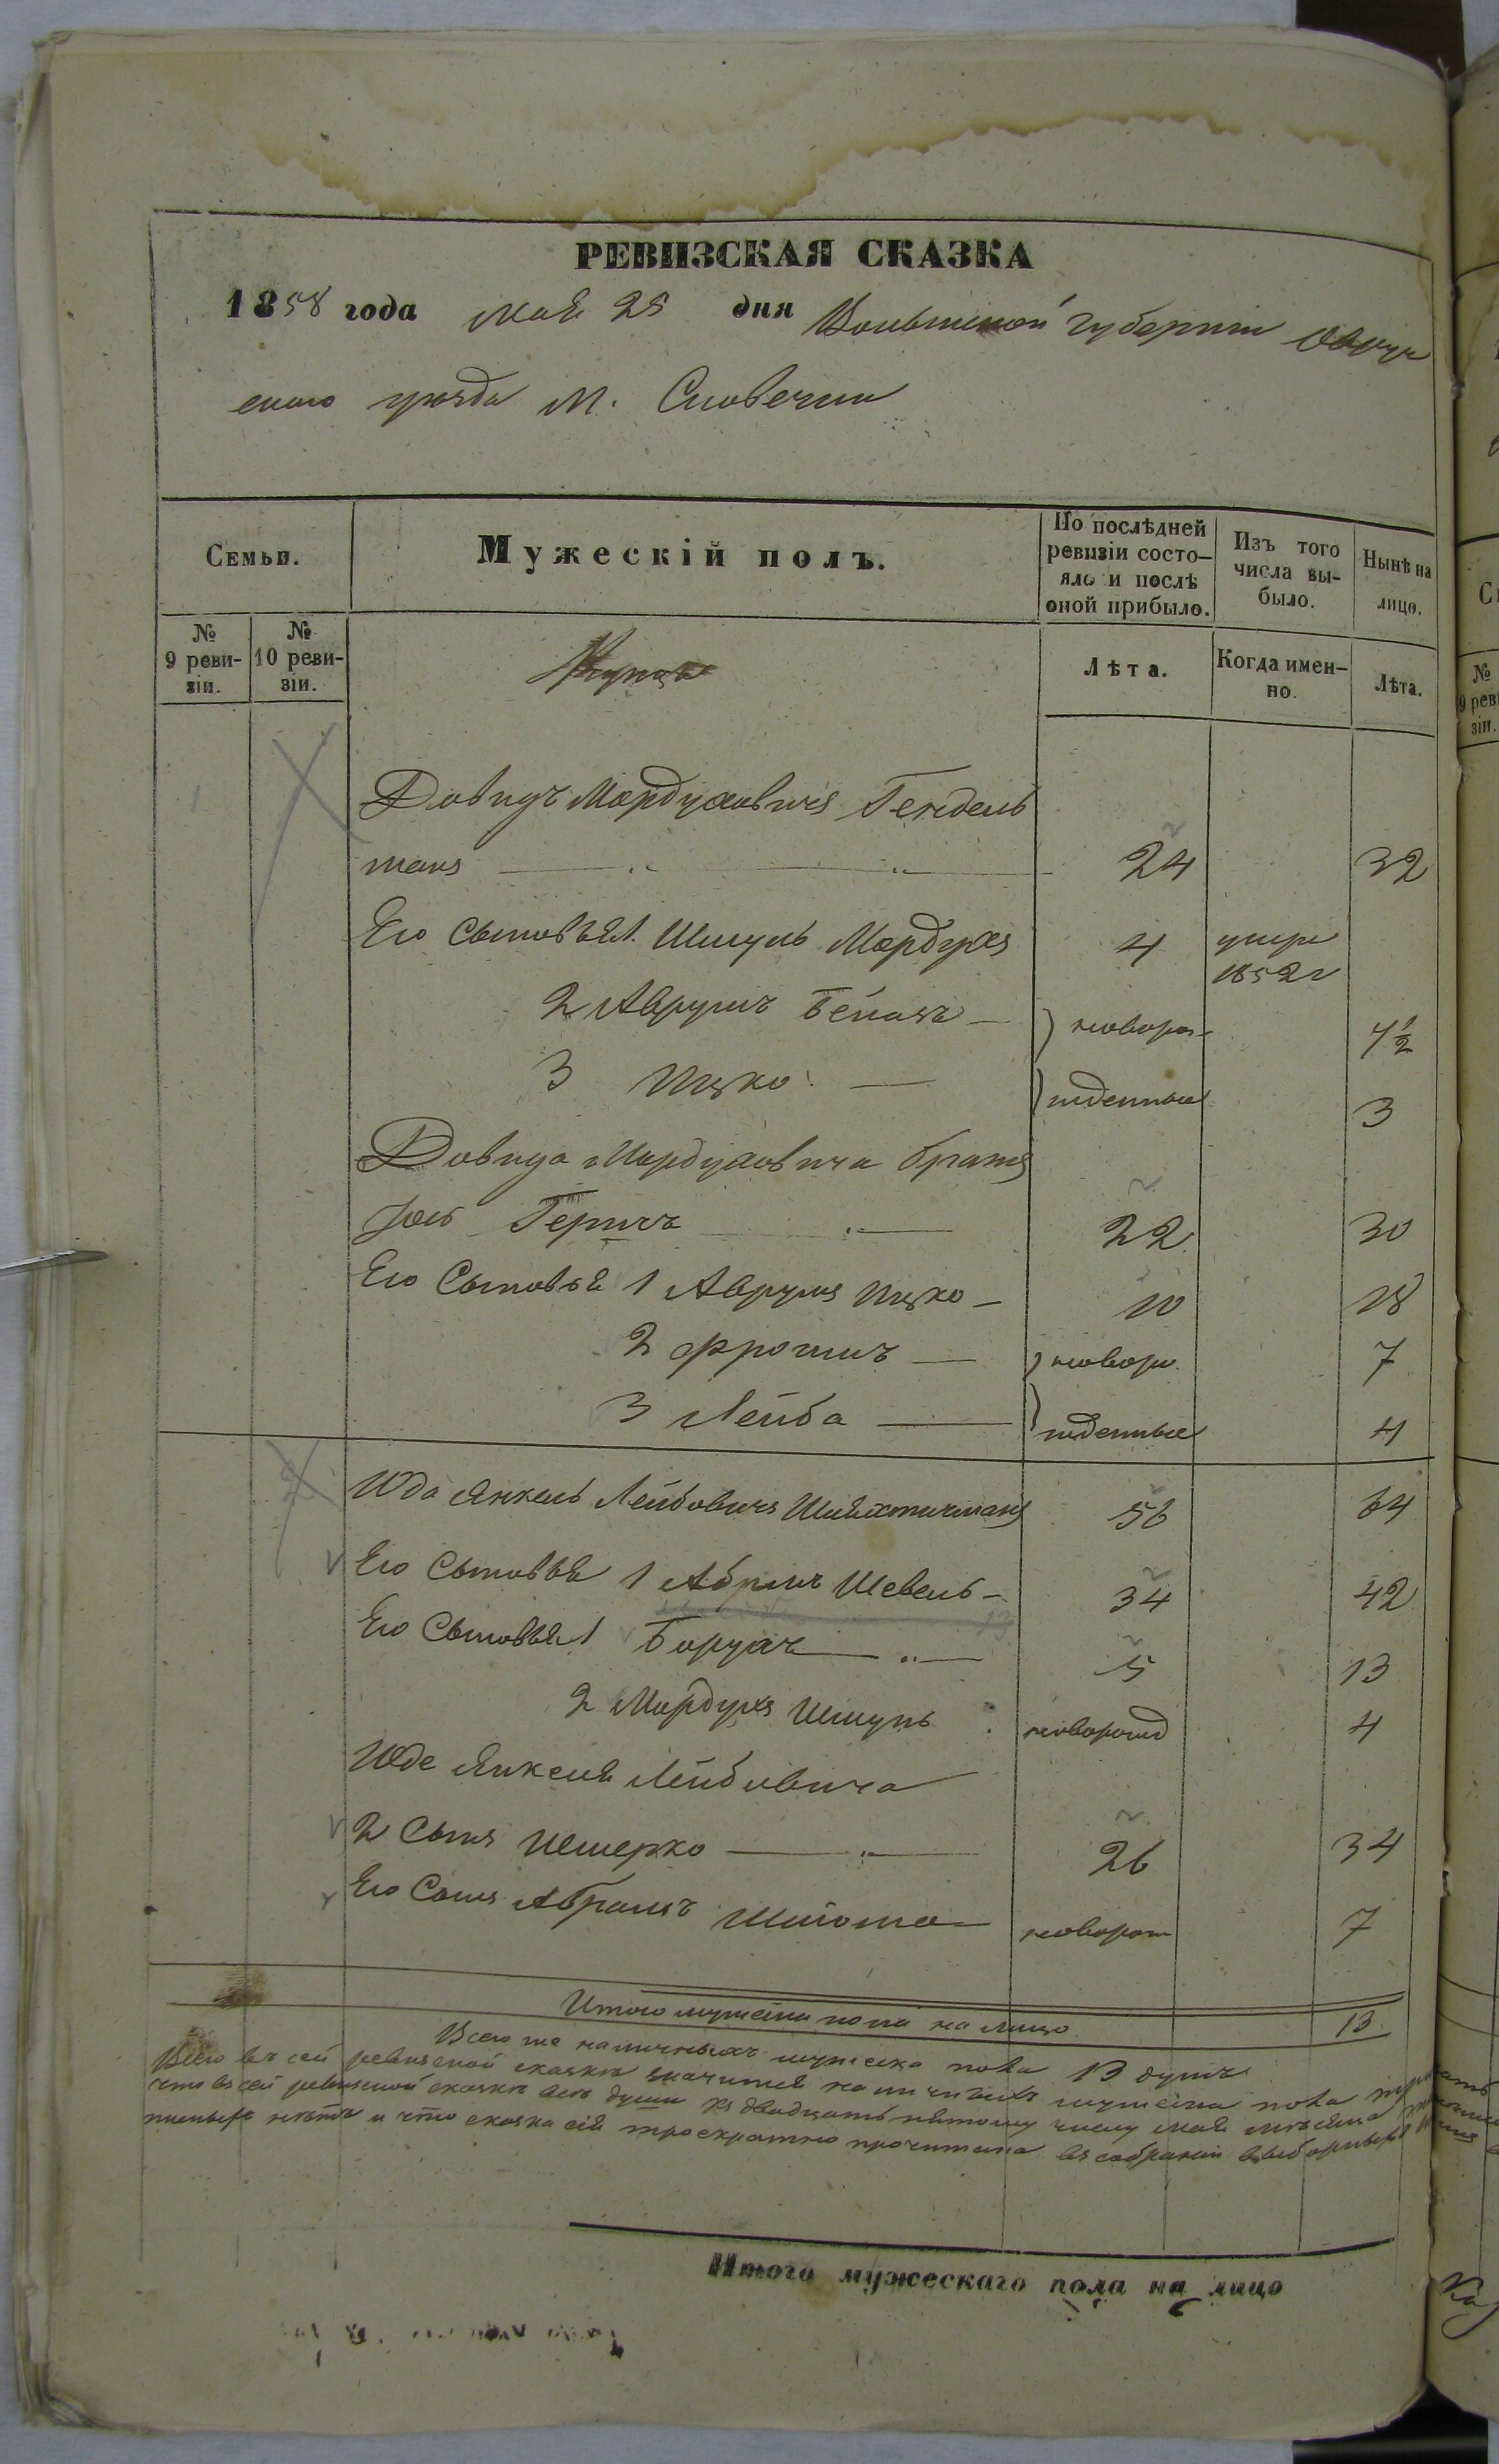 РЕВИЗСКАЯ СКАЗКА
1858 года Мая 25 дня Волынской губернии Овруч
скаго уѣзда м. Словечни
Семьи.
Мужескій полъ.
По послѣдней ревизіи состо-яло и послѣ оной прибыло.
Изъ того числа вы-было.
Нынѣ на лицо.
№ 9 реви-зіи.
№ 10 реви-зіи.
Купцы
Лѣта.
Когда имен-но.
Лѣта.
1
Довидъ Мордуховичъ Гендель
манъ 24 32
Его Сыновья 1. Шмуль Мордухъ 4 умеръ 1852 г
2 Аврумъ Бейла 7½
3 Ицко 3
новорож-
жденные
Довида Мордуховича братъ
Іось Гершъ 22 30
Его Сыновья 1 Аврумъ Ицко 10 18
2 Фроимъ 7
3 Лейба 4
новорож
жденные
2
Юда Янкель Лейбовичъ 56 64
Его Сыновья 1 Абрамъ Шевель 34 42
Его Сыновья 1 Борухъ 5 13
2 Мордухъ Шмуль новорожд 4
Юде Янкеля Лейбовича
2 Сынъ Шмерко 26 34
Его Сынъ Абрамъ новорож 7
Итого мужеска пола на лицо 13
Всего же наличныхъ мужеска пола 13 душъ
Всего въ сей ревизской сказкѣ значится наличныхъ мужеска пола
что въ сей ревизской сказкѣ всѣ души къ двадцать пятому числу мая мѣсяца
нѣтъ и что сказка сія троекратно прочитана въ собраніи выборныхъ
Итого мужескаго пола на лицо